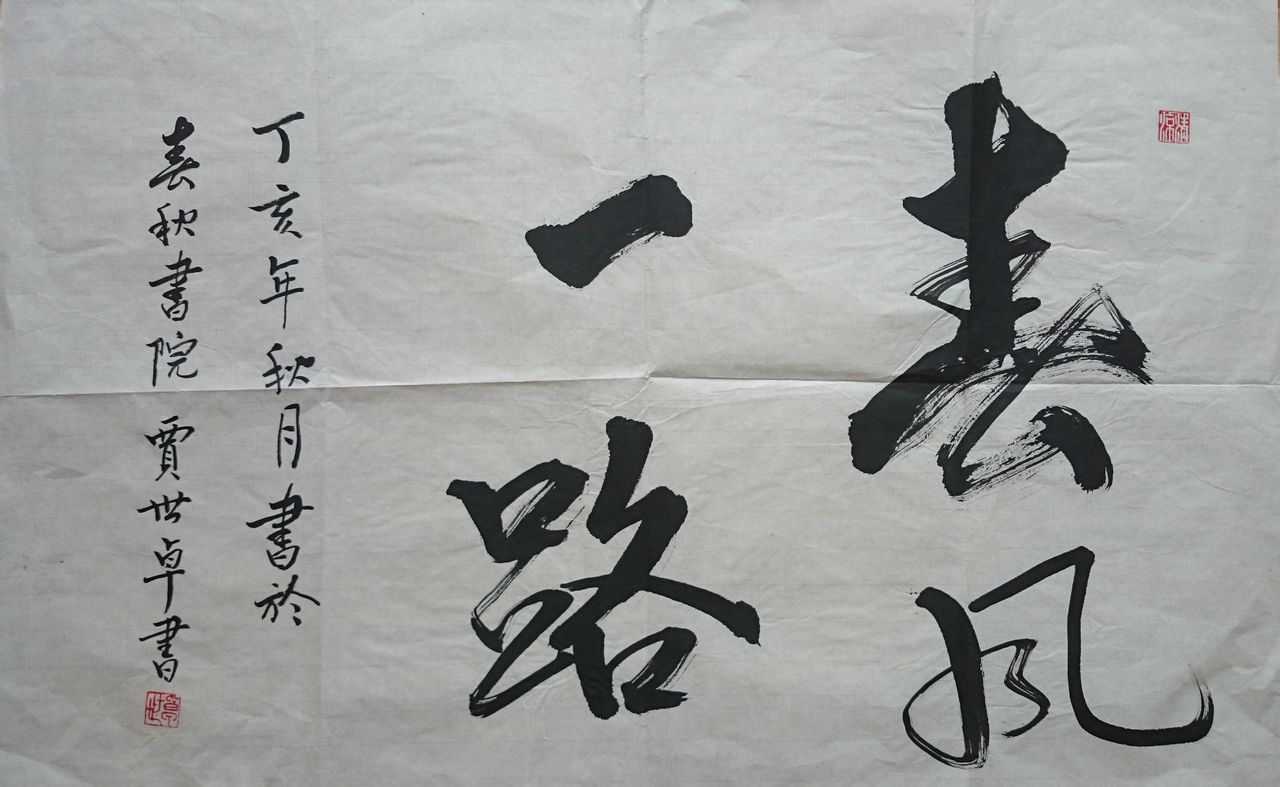 春风
一路
丁亥年秋月書於
春秋書院 賈世卓書